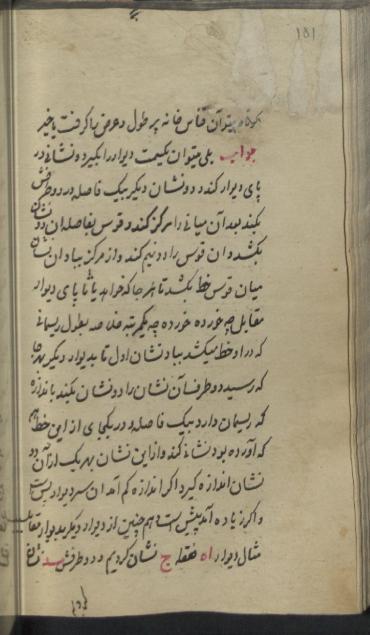 ۱۵۱
میتوان قناس خانه پر طول و عرض را گرفت یا خیر
جواب بلی میتوان یکسمت دیوار را بگیرد و نشانی در
پای دیوار کند و دو نشان دیگر بیک فاصله در دو طرفش
بکند بعد آن میانی را مرکز کند و قوس بفاصله آن دو نشان
بکشد و آن قوس را دو نیم کند و از مرکز بنیاد آن نشان
میان قوس خط بکشد تا هر جا که خواهد یا تا پای دیوار
مقابل چه خورده خورده چه یکمرتبه مد بطول ریسمانی
که در او خط میکشد بنیاد نشان اول تا بدیوار دیگر هر جا
که رسید دو طرف آن نشان را دو نشان بکند باندازه
که ریسمان دارد بیک فاصله و در یکجای از این خط هم
که آورده بود نشانه کند و از این نشان بهر یک از آن دو
نشان اندازه گیرد اگر اندازه کم آمد آن سر دیوار پس است
و اگر زیاده آمد پیش است و هم چنین از دیوار دیگر بدیوار مقابل
مثال دیوار اه نقطه ج نشان کردیم و دو طرفش نشان